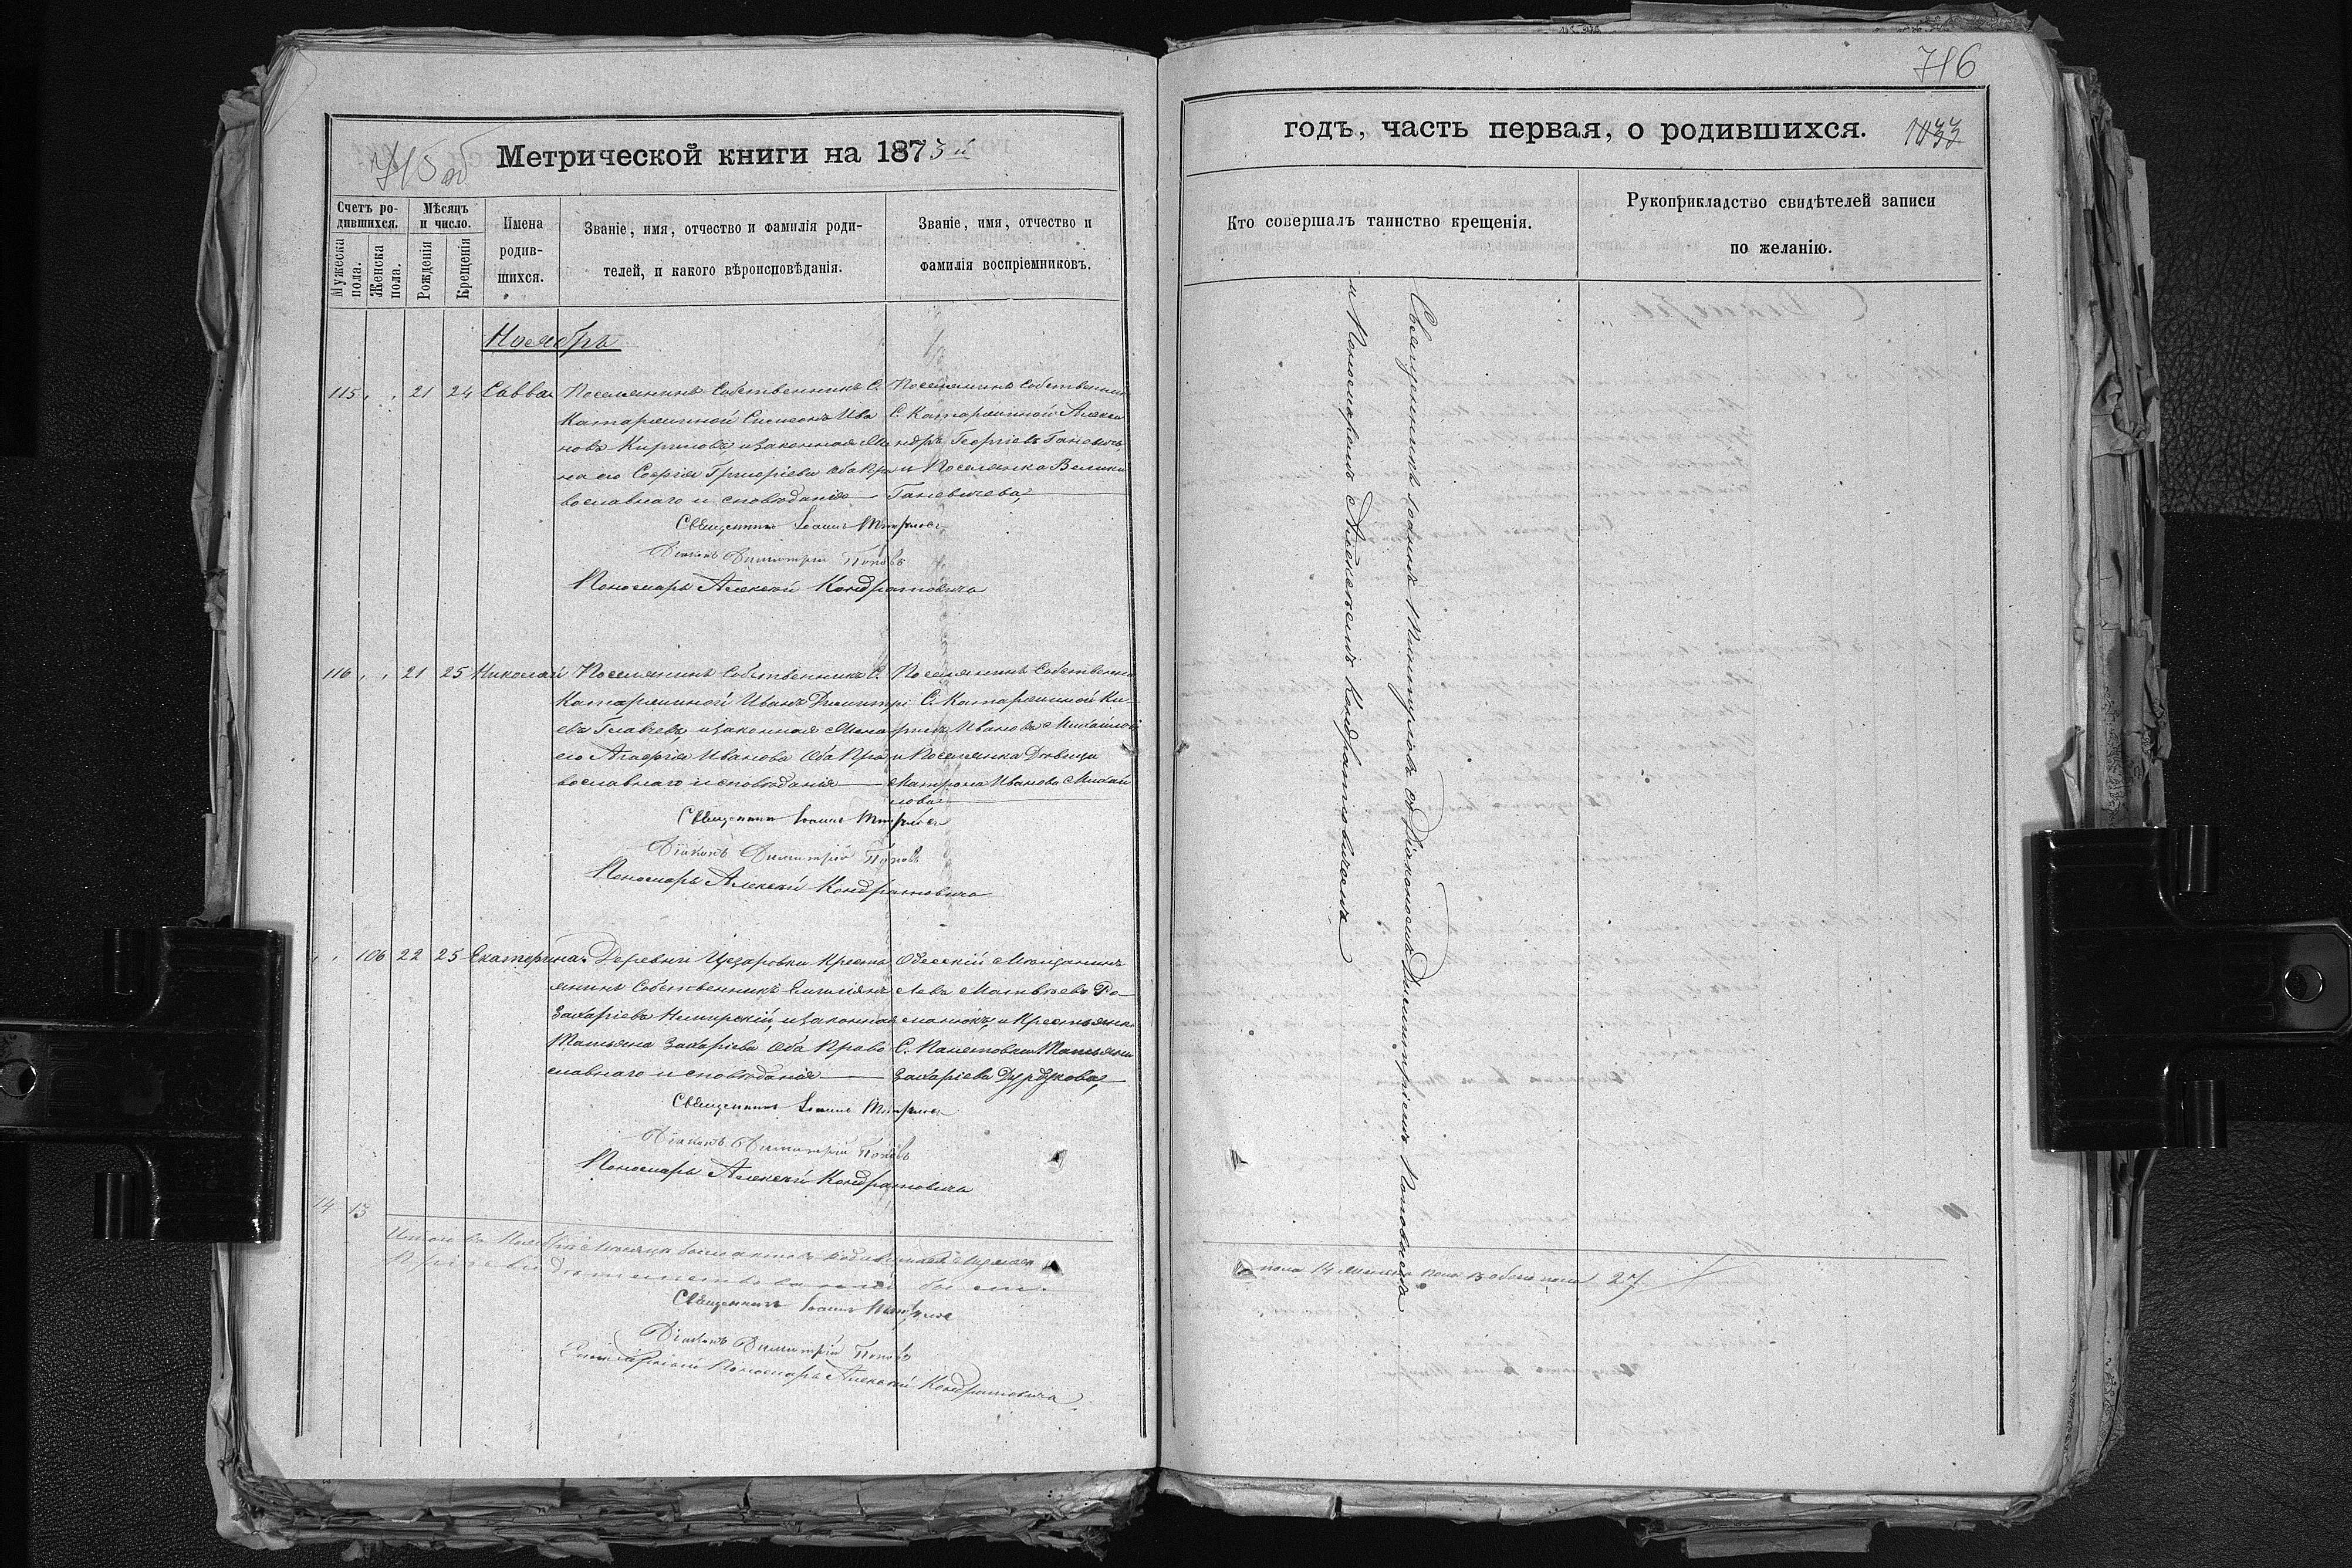 715 об
Метрической книги на 1873й
Счетъ ро-
дившихся.
Мѣсяцъ
и число.
Мужеска
пола.
Женска
пола.
Рожденія
Крещенія
Имена
родив-
шихся.
Званіе, имя, отчество и фамилія роди-
телей, и какого вѣроисповѣданія.
Званіе, имя, отчество и
фамилія воспріемниковъ.
Ноябрь
115 21 24 Савва
Поселянинъ Собственникъ С.
Катаржиной Симеонъ Ива
новъ Кириловъ, и законная Же
на его Софія Григоріева Оба Пра
вославнаго исповѣданія
Поселянинъ Собственникъ
С. Катаржиной Алекса
ндръ Георгіевъ Ганевичъ,
и Поселянка Велика
Ганевичева,
Священникъ Іоаннъ
Діаконъ Димитрій Поповъ
Пономарь Алексѣй Кондратовичъ
116 21 25 Николай
Поселянинъ Собственникъ С.
Катаржиной Иванъ Димитрі
евъ Главчевъ, и законная Жена
его Агафія Иванова Оба Пра
вославнаго исповѣданія
Поселянинъ Собственни
С. Катаржиной Ки-
рилъ Ивановъ Михайлов
и Поселянка Дѣвица
Матрона Иванова Михай
лова
Священникъ Іоаннъ
Діаконъ Димитрій Поповъ
Пономарь Алексѣй Кондратовичъ
106 22 25 Екатерина
Деревни Цезаровки Кресть
янинъ Собственникъ Емиліянъ
Захаріевъ Немирскій, и законная
Татьяна Захаріева Оба Право
славнаго исповѣданія
Одесскій Мѣщанинъ
Левъ Матвѣевъ Ро-
манюкъ, и Крестьянка
С. Танетовки Татьяна
Захаріева Дурдукова,
Священникъ Іоаннъ
Діаконъ Димитрій Поповъ
Пономарь Алексѣй Кондратовичъ
14 13
Итого въ Ноябрѣ Мѣсяцѣ родившихся Мужеска
Священникъ Іоаннъ
Діаконъ Димитрій Поповъ
Пономарь Алексѣй Кондратовичъ
716
годъ, часть первая, о родившихся.
1033
Кто совершалъ таинство крещенія.
Рукоприкладство свидѣтелей записи
по желанію.
Священникъ Іоаннъ съ Діакономъ Димитріемъ Поповымъ
и Пономаремъ Алексѣемъ Кондратовичемъ
пола 14 женска пола 13 обоего пола 27